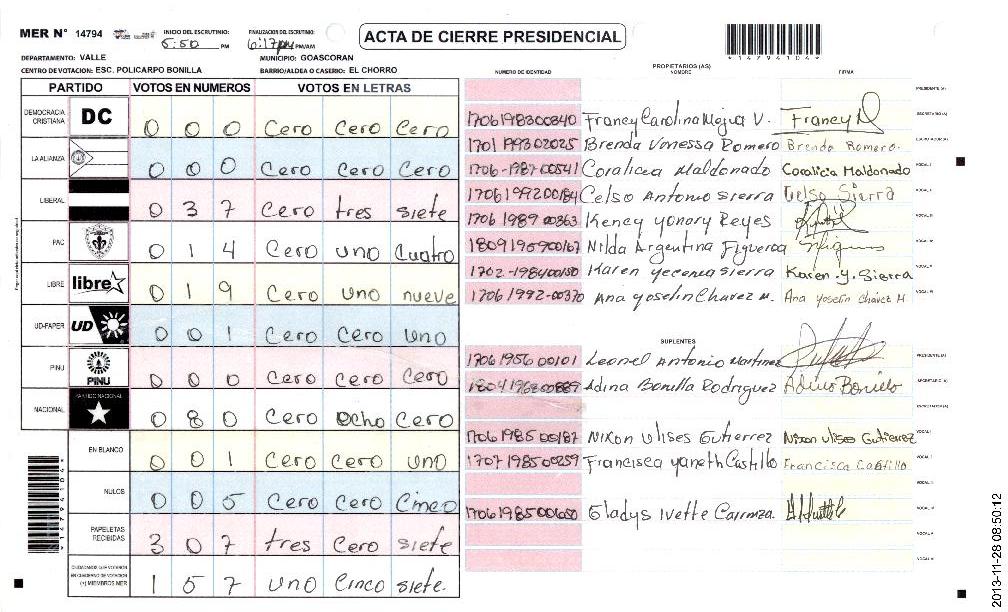 MER N° 14794
INICIO DEL ESCRUTINIO: 5:50 PM
FINALIZACION DEL ESCRUTINIO: 6:17 pm PM/AM
ACTA DE CIERRE PRESIDENCIAL
*14794104*
DEPARTAMENTO: VALLE
MUNICIPIO: GOASCORAN
CENTRO DE VOTACION: ESC. POLICARPO BONILLA
BARRIO/ALDEA O CASERIO: EL CHORRO
PARTIDO VOTOS EN NUMEROS VOTOS EN LETRAS
DEMOCRACIA CRISTIANA DC 0 0 0 Cero Cero Cero
LA ALIANZA 0 0 0 Cero Cero Cero
LIBERAL 0 3 7 Cero tres siete
PAC 0 1 4 Cero uno Cuatro
LIBRE libre 0 1 9 Cero uno nueve
UD-FAPER UD 0 0 1 Cero Cero uno
PINU PINU 0 0 0 Cero Cero Cero
NACIONAL PARTIDO NACIONAL 0 8 0 Cero ocho Cero
EN BLANCO 0 0 1 Cero Cero uno
NULOS 0 0 5 Cero Cero Cinco
PAPELETAS RECIBIDAS 3 0 7 tres Cero siete
CIUDADANOS QUE VOTARON EN CUADERNO DE VOTACION (+) MIEMBROS MER 1 5 7 uno Cinco siete.
*14794104*
NUMERO DE IDENTIDAD PROPIETARIOS (AS) NOMBRE FIRMA
PRESIDENTE (A)
1706198300840 Francy Carolina Mejia V. Francy M SECRETARIO (A)
1701 1993 02025 Brenda Vanessa Romero Brenda Romero. ESCRUTADOR (A)
1706-1987-00541 Coralicia Maldonado Coralicia Maldonado VOCAL I
1706199200184 Celso Antonio Sierra Celso Sierra VOCAL II
1706 1989 00363 Kency yonary Reyes VOCAL III
1809195900167 Nilda Argentina Figueroa VOCAL IV
1702-198400150 Karen yecenia sierra Karen. y. Sierra VOCAL V
1706 1992-00370 Ana yoselin Chavez M. Ana Yoselin Chávez M.
SUPLENTES
1706 1956 00101 Leonel Antonio Martinez PRESIDENTE (A)
1804196800889 Adina Bonilla Rodriguez Adina Bonilla SECRETARIO (A)
ESCRUTADOR (A)
1706 1985 00187 Nixon Ulises Gutierrez Nixon Ulises Gutierrez VOCAL I
1707 1985 00259 Francisca yaneth Castillo Francisca Castillo VOCAL II
VOCAL III
1706198500650 Gladys Ivette Carranza.
VOCAL V
2013-11-28 08:50:12